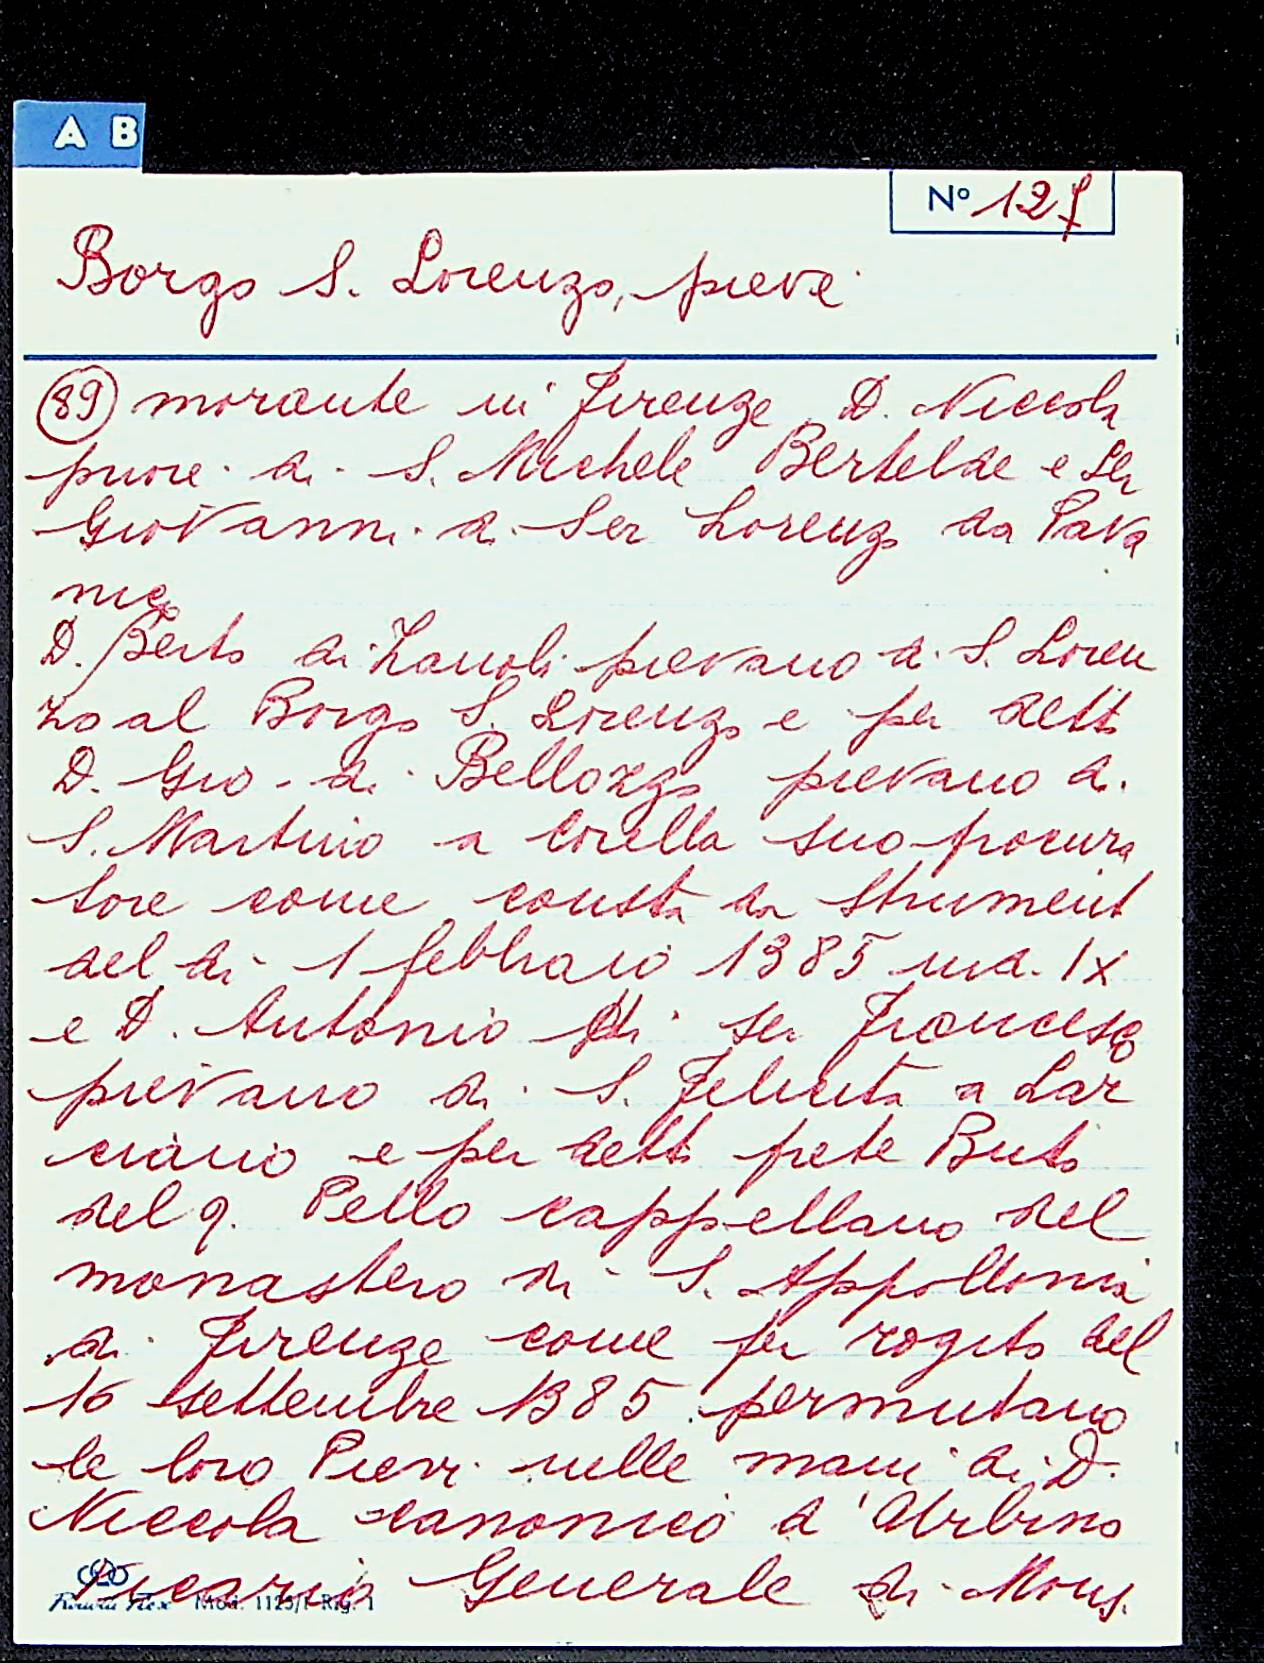 A B
Nº 127
Borgo S. Lorenzo, pieve
89 morante in Firenze D. Niccola
priore di S. Michele Bertelde e Ser
Giovanni di Ser Lorenzo da Pava
nico
D. Berto di Zanoli pievano di S. Loren
zo al Borgo S. Lorenzo e per detto
D. Gio. di Bellozzo pievano di
S. Martino a Corella suo procura
tore come consta da strumento
del dì 1 febbraio 1385 ind. IX
e D. Antonio di ser Francesco
pievano di S. Felicita a Lar
ciano e per detto prete Buto
del q. Pello cappellano del
monastero di S. Appollonia
di Firenze come per rogito del
16 settembre 1385 permutano
le loro Pievi nelle mani di D.
Niccola canonico d'Urbino
Vicario Generale di Mons.
Mod. 1125/1 Rig. 1